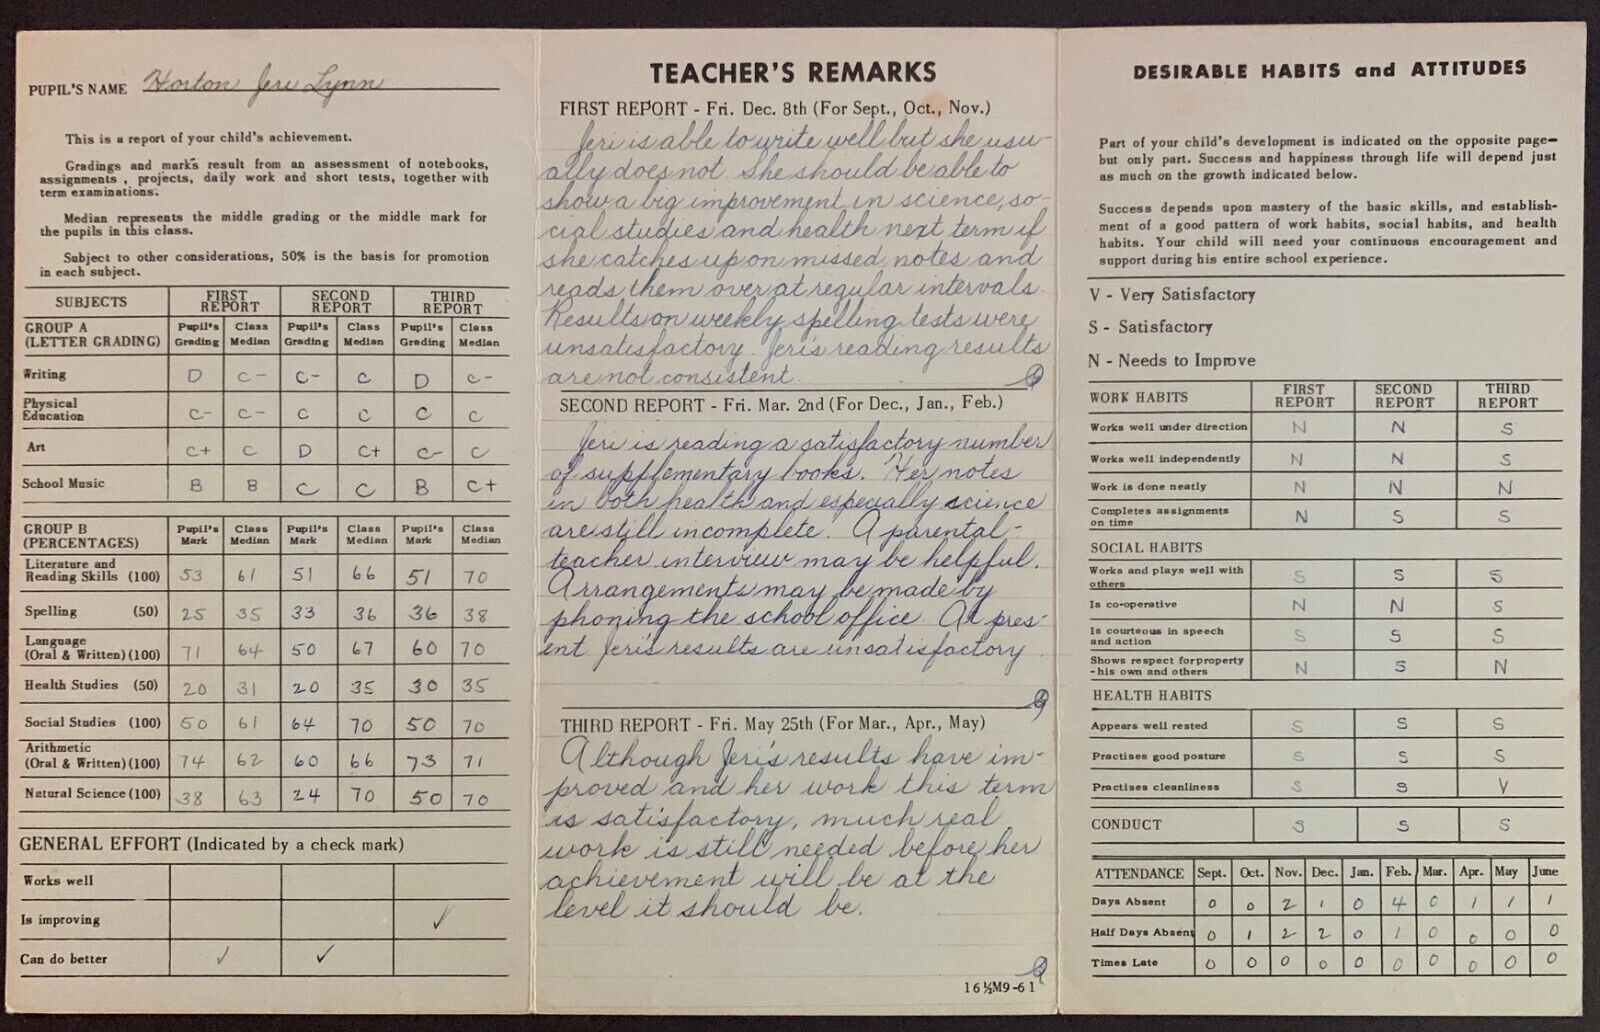 PUPIL'S NAME Horton Jeri Lynn
This is a report of your child's achievement.
Gradings and marks result from an assessment of notebooks,
assignments, projects, daily work and short tests, together with
term examinations.
Median represents the middle grading or the middle mark for
the pupils in this class.
Subject to other considerations, 50% is the basis for promotion
in each subject.
SUBJECTS FIRST REPORT SECOND REPORT THIRD REPORT
GROUP A (LETTER GRADING) Pupil's Grading Class Median Pupil's Grading Class Median Pupil's Grading Class Median
Writing D C- C- C D C-
Physical Education C- C- C C C C
Art C+ C D C+ C- C
School Music B B C C B C+
GROUP B (PERCENTAGES) Pupil's Mark Class Median Pupil's Mark Class Median Pupil's Mark Class Median
Literature and Reading Skills (100) 53 61 51 66 51 70
Spelling (50) 25 35 33 36 36 38
Language (Oral & Written) (100) 71 64 50 67 60 70
Health Studies (50) 20 31 20 35 30 35
Social Studies (100) 50 61 64 70 50 70
Arithmetic (Oral & Written) (100) 74 62 60 66 73 71
Natural Science (100) 38 63 24 70 50 70
GENERAL EFFORT (Indicated by a check mark)
Works well
Is improving ✓
Can do better ✓ ✓
TEACHER'S REMARKS
FIRST REPORT - Fri. Dec. 8th (For Sept., Oct., Nov.)
Jeri is able to write well but she usu-
ally does not. She should be able to
show a big improvement in science, so-
cial studies and health next term if
she catches up on missed notes and
reads them over at regular intervals.
Results on weekly spelling tests were
unsatisfactory. Jeri's reading results
are not consistent.
SECOND REPORT - Fri. Mar. 2nd (For Dec., Jan., Feb.)
Jeri is reading a satisfactory number
of supplementary books. Her notes
in both health and especially science
are still incomplete. A parental-
teacher interview may be helpful.
Arrangements may be made by
phoning the school office. At pres-
ent Jeri's results are unsatisfactory.
THIRD REPORT - Fri. May 25th (For Mar., Apr., May)
Although Jeri's results have im-
proved and her work this term
is satisfactory, much real
work is still needed before her
achievement will be at the
level it should be.
16½M9-61
DESIRABLE HABITS and ATTITUDES
Part of your child's development is indicated on the opposite page—
but only part. Success and happiness through life will depend just
as much on the growth indicated below.
Success depends upon mastery of the basic skills, and establish-
ment of a good pattern of work habits, social habits, and health
habits. Your child will need your continuous encouragement and
support during his entire school experience.
V - Very Satisfactory
S - Satisfactory
N - Needs to Improve
WORK HABITS FIRST REPORT SECOND REPORT THIRD REPORT
Works well under direction N N S
Works well independently N N S
Work is done neatly N N N
Completes assignments on time N S S
SOCIAL HABITS
Works and plays well with others S S S
Is co-operative N N S
Is courteous in speech and action S S S
Shows respect for property -his own and others N S N
HEALTH HABITS
Appears well rested S S S
Practises good posture S S S
Practises cleanliness S S V
CONDUCT S S S
ATTENDANCE Sept. Oct. Nov. Dec. Jan. Feb. Mar. Apr. May June
Days Absent 0 0 2 1 0 4 0 1 1 1
Half Days Absent 0 1 2 2 0 1 0 0 0 0
Times Late 0 0 0 0 0 0 0 0 0 0